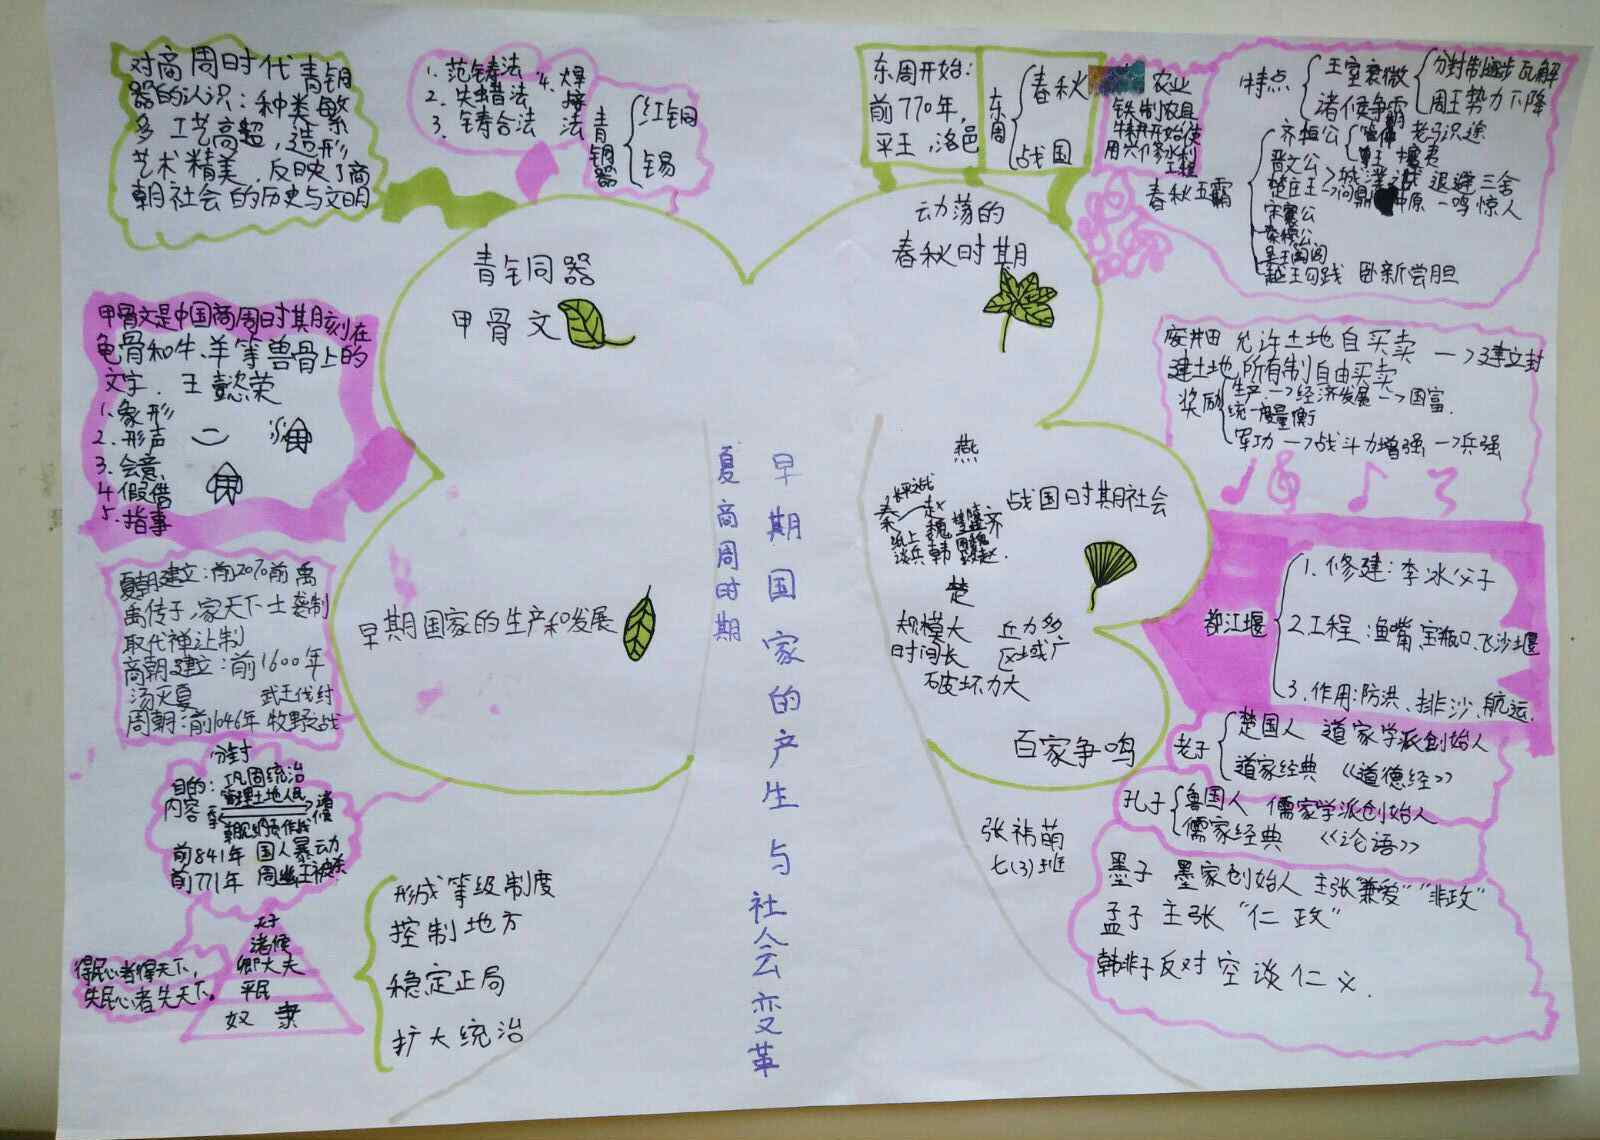 对商周时代青铜
器的认识：种类繁
多，工艺高超，造形
艺术精美，反映了商
朝社会的历史与文明
1. 范铸法
2. 失蜡法
3. 铸合法
4. 焊接法
青铜器
红铜
锡
青铜器
甲骨文
甲骨文是中国商周时期刻在
龟骨和牛、羊等兽骨上的
文字. 王懿荣
1. 象形
2. 形声
3. 会意
4. 假借
5. 指事
夏朝建立：前2070前 禹
禹传子，家天下 世袭制
取代禅让制
商朝建立：前1600年
汤灭夏 武王伐纣
周朝：前1046年 牧野之战
早期国家的生产和发展
分封
目的：巩固统治
内容
管理土地人民
诸侯
前841年 国人暴动
前771年
天子
诸侯
卿大夫
平民
奴隶
得民心者得天下，
失民心者失天下。
形成等级制度
控制地方
稳定正局
扩大统治
夏商周时期
早期国家的产生与社会变革
东周开始：
前770年，
平王，洛邑
东周
春秋
战国
农业
铁制农具
牛耕开始使
用兴修水利
工程
动荡的
春秋时期
特点
王室衰微
分封制逐步瓦解
周王势力下降
诸侯争霸
春秋五霸
齐桓公 老马识途
晋文公 退避三舍
楚庄王→问鼎中原 一鸣惊人
宋襄公
秦穆公
吴王阖闾
越王勾践 卧新尝胆
废井田 允许土地自买卖 →建立封
建土地所有制自由买卖
奖励
生产→经济发展→国富.
统一度量衡
军功→战斗力增强→兵强
燕
长平之战
秦
赵
纸上
谈兵
魏
韩
齐
楚
战国时期社会
规模大 兵力多
时间长 区域广
破坏力大
都江堰
1. 修建：李冰父子
2. 工程：鱼嘴，宝瓶口、飞沙堰
3. 作用：防洪、排沙、航运.
百家争鸣
老子
楚国人 道家学派创始人
道家经典 《道德经》
孔子
鲁国人 儒家学派创始人
儒家经典 《论语》
墨子 墨家创始人 主张“兼爱”“非政”
孟子 主张“仁政”
韩非子反对空谈仁义.
张祎萌
七(3)班